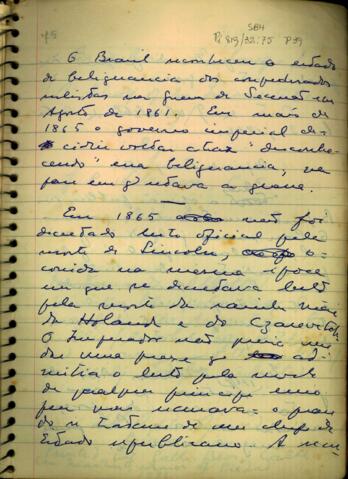 75
SBH
Pi 819/32:75 P39
O Brasil reconheceu o estado
de beligerancia dos confederados
sulistas na guerra de Secessão em
Agosto de 1861. Em maio de
1865 o governo imperial de-
cidiu voltar atraz "desconhe-
cendo" essa beligerancia, na
fase em q estava a guerra.
Em 1865 não foi
decretado luto oficial pela
morte de Lincoln, o-
corrida na mesma epoca
em que se decretava luto
pela morte da rainha mãe
da Holanda e do Czarevitch
O Imperador não queria
dar uma praxe q ad-
mitia o luto pela morte
de qualquer principe
mas o
do se tratasse de um chefe de
Estado republicano. A